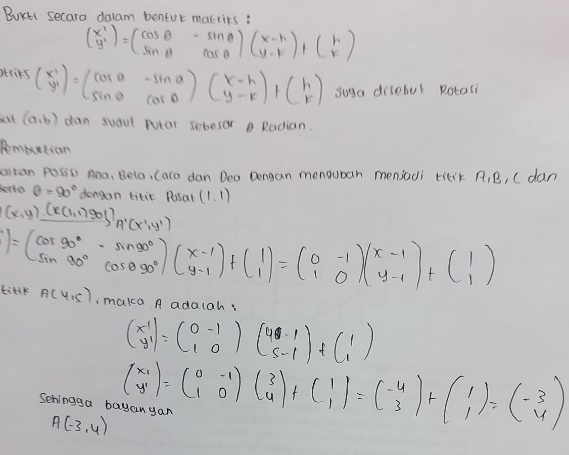 Bukti secara dalam bentuk matriks :
(x' y') = (cos θ - sin θ sin θ cos θ) (x-h y-k) + (h k)
triks (x' y') = (cos θ -sin θ sin θ cos θ) (x-h y-k) + (h k) juga disebut Rotasi
sat (a,b) dan sudut putar sebesar θ Radian.
Pembuktian
Posisi Ana, Bela, Caca dan Dea Dengan mengubah menjadi titik A, B, C dan
serta θ = 90° dengan titik Pusat (1.1)
(x,y) (R(1,1)90°) A'(x',y')
') = (cos 90° - sin 90° sin 90° cos θ 90°) (x-1 y-1) + (1 1) = (0 -1 1 0) (x-1 y-1) + (1 1)
titik A(4,5), maka A adalah :
(x' y') = (0 -1 1 0) (4-1 5-1) + (1 1)
(x' y') = (0 -1 1 0) (3 4) + (1 1) = (-4 3) + (1 1) = (-3 4)
Sehingga bayangan
A(-3,4)